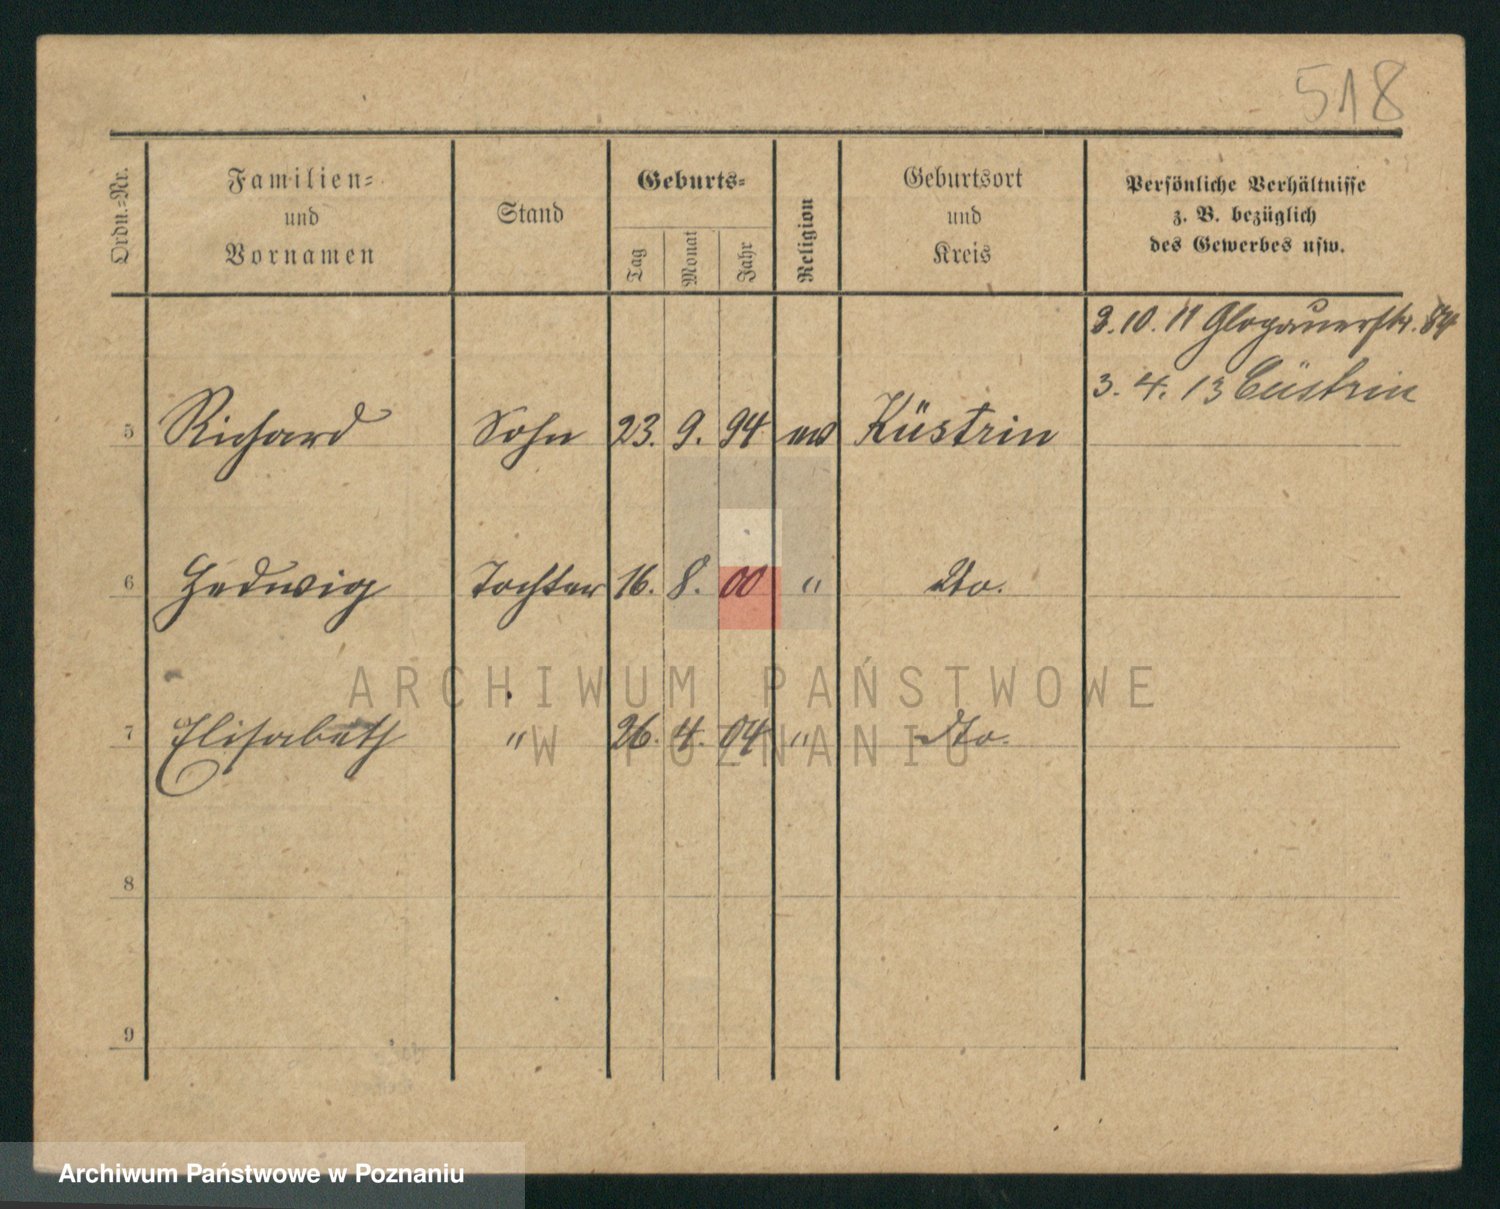 518
Ordn.-Nr.
Familien-
und
Vornamen
Stand
Geburts-
Tag
Monat
Jahr
Religion
Geburtsort
und
Kreis
Persönliche Verhältnisse
z. B. bezüglich
des Gewerbes usw.
3.10.11 Glogauerstr. 84
3.4.13 Cüstrin
5 Richard Sohn 23. 9. 94 ev Küstrin
6 Hedwig Tochter 16. 8. 00 " Do.
7 Elisabeth " 26. 4. 04 " Do.
8
9
ARCHIWUM PAŃSTWOWE
W POZNANIU
Archiwum Państwowe w Poznaniu